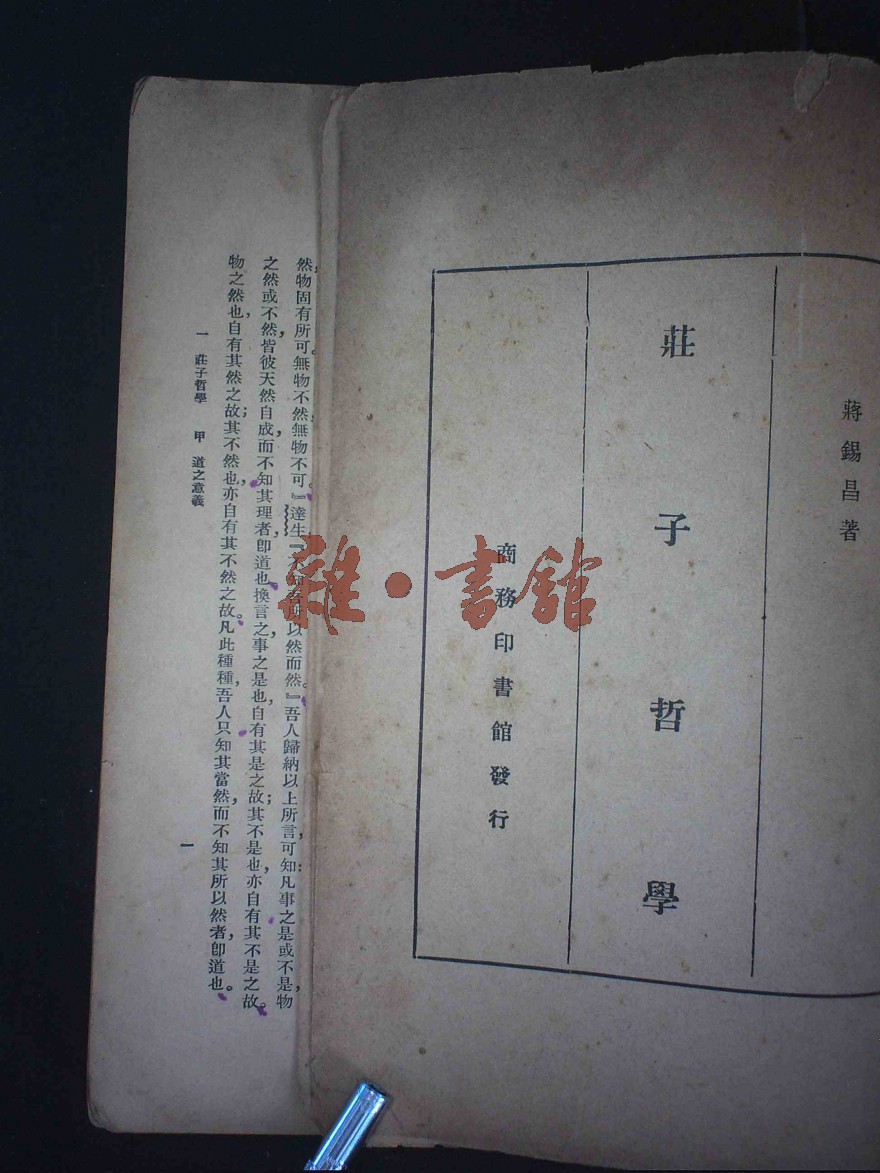 蔣錫昌著
莊子哲學
商務印書館發行
然,物固有所可。無物不然,無物不可。』達生『不知吾所以然而然。』吾人歸納以上所言,可知:凡事之是或不是,物
之然或不然,皆彼天然自成,而不知其理者,卽道也。換言之,事之是也,自有其是之故;其不是也,亦自有其不是之故。
物之然也,自有其然之故;其不然也,亦自有其不然之故。凡此種種,吾人只知其當然,而不知其所以然者,卽道也。
一 莊子哲學 甲 道之意義
一
雜·書館